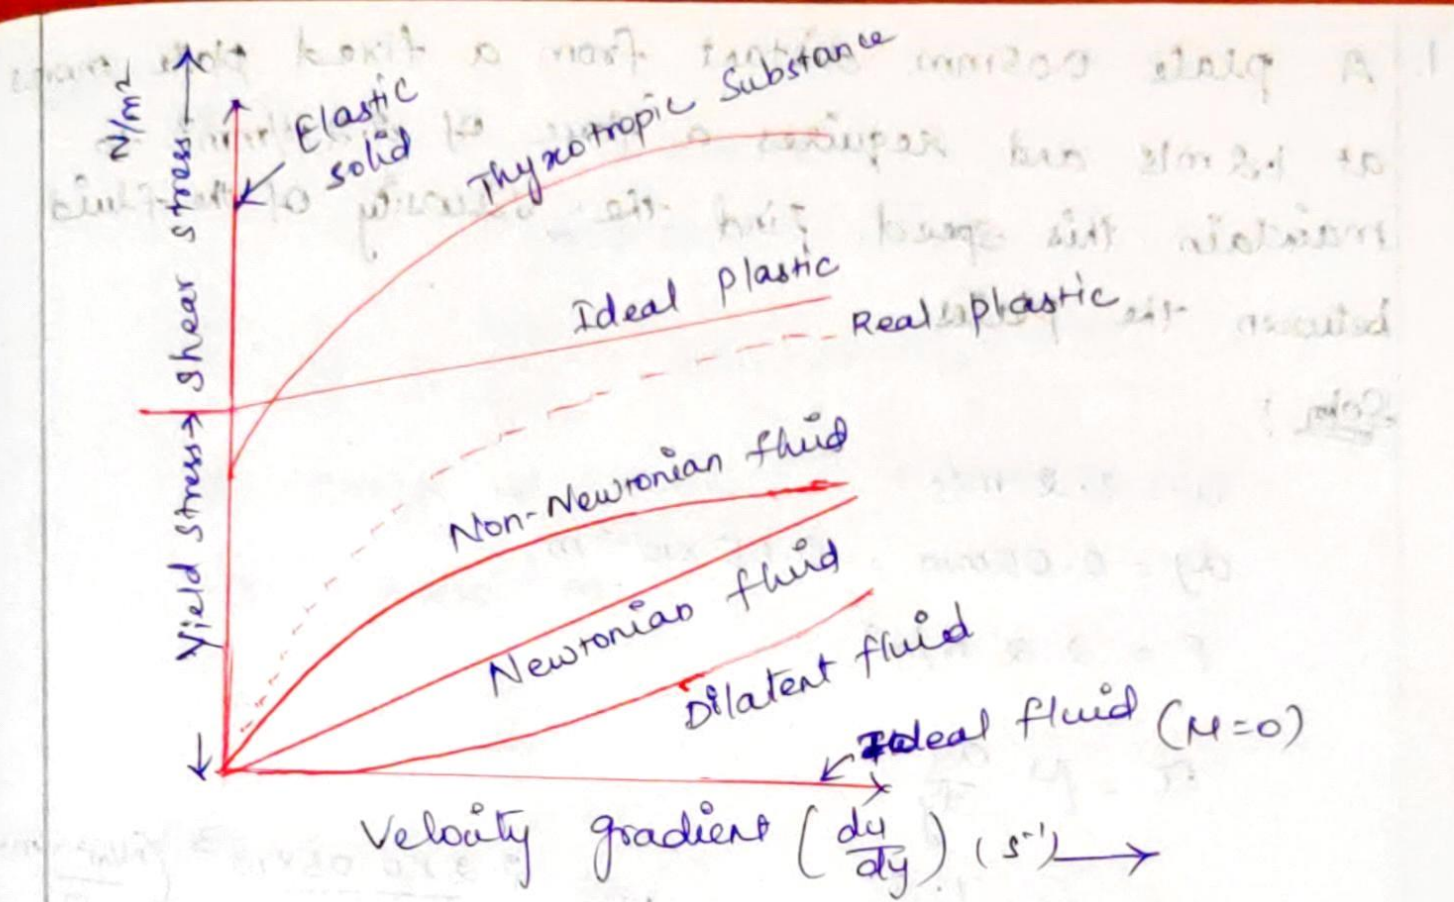 N/m²
Yield stress→ shear stress→
Elastic
solid
Thyxotropic Substance
Ideal plastic
Real plastic
Non-Newtonian fluid
Newtonian fluid
Dilatent fluid
Ideal fluid (M=0)
Velocity gradient (du/dy) (s⁻¹)→